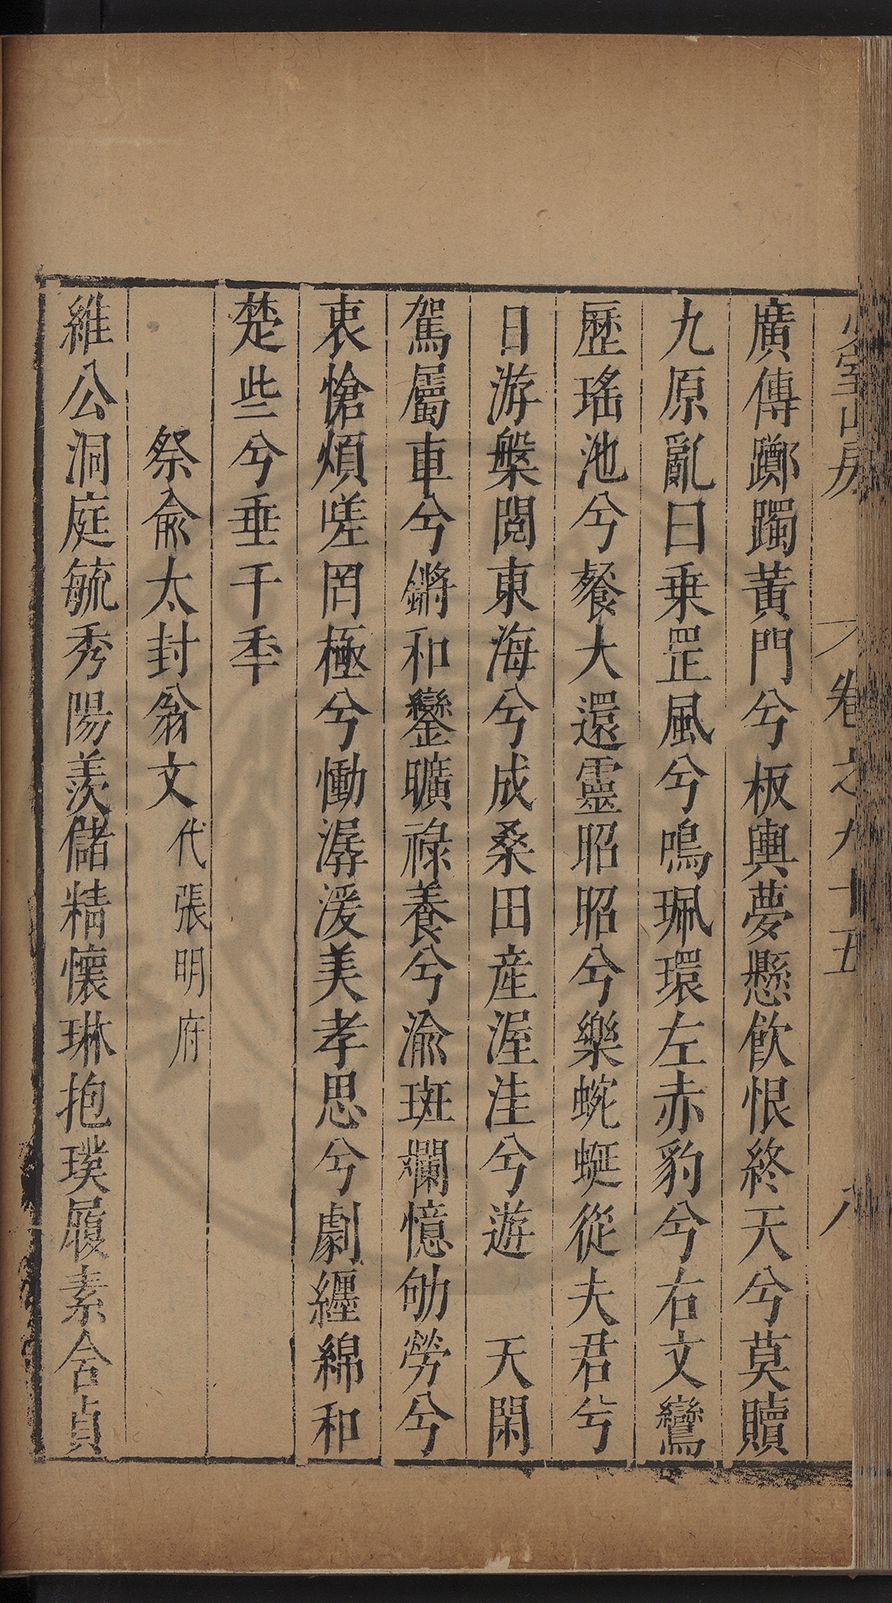 少室山房 卷之九十五 八
廣傳躑躅黃門兮板輿夢懸飲恨終天兮莫贖
九原亂曰乗罡風兮鳴珮環左赤豹兮右文鸞
歷瑤池兮餐大還靈昭昭兮樂蜿蜒從夫君兮
日游槃閲東海兮成桑田産渥洼兮遊 天閑
駕屬車兮鏘和鑾曠祿養兮渝斑斕憶劬勞兮
衷愴煩嗟罔極兮慟潺湲美孝思兮劇纏綿和
楚些兮垂千秊
祭俞太封翁文代張明府
維公洞庭毓秀陽羨儲精懷琳抱璞履素含貞